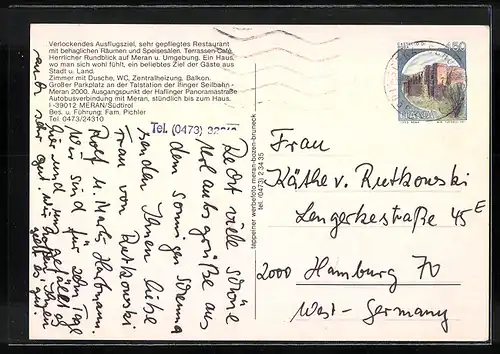 Verlockendes Ausflugsziel, sehr gepflegtes Restaurant
mit behaglichen Räumen und Speisesälen. Terrassen-Café.
Herrlicher Rundblick auf Meran u. Umgebung. Ein Haus,
wo man sich wohl fühlt, ein beliebtes Ziel der Gäste aus
Stadt u. Land.
Zimmer mit Dusche, WC, Zentralheizung, Balkon.
Großer Parkplatz an der Talstation der Ifinger Seilbahn -
Meran 2000. Ausgangspunkt der Haflinger Panoramastraße
Autobusverbindung mit Meran, stündlich bis zum Haus.
I-39012 MERAN/Südtirol
Bes. u. Führung: Fam. Pichler
Tel. 0473/24310
Tel. (0473)
tappeiner werbefoto meran-bozen-bruneck
tel. (0473) 2 34 35
450
Recht viele schöne
Urlaubsgrüße aus
dem sonnigen Schenna
senden Ihnen liebe
Frau von Rutkowski
Rolf u. Hartmann.
Wir sind für zehn Tage
hier und uns gefällt es
auch sehr gut. Wir hoffen Ihnen
geht es gut.
Frau
Käthe v. Rutkowski
Lengerkestraße 45 E
2000 Hamburg 70
West-Germany